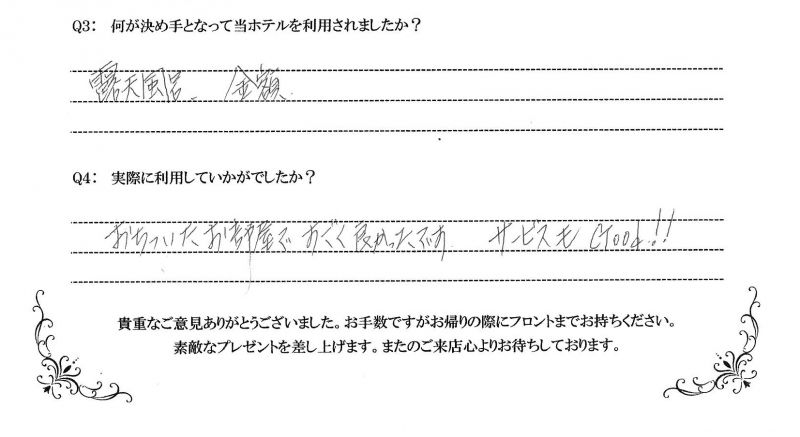 Q3: 何が決め手となって当ホテルを利用されましたか?
露天風呂、 金額.
Q4: 実際に利用していかがでしたか?
おちついたお部屋で すごく良かったです サービスも Good!!
貴重なご意見ありがとうございました。お手数ですがお帰りの際にフロントまでお持ちください。
素敵なプレゼントを差し上げます。またのご来店心よりお待ちしております。